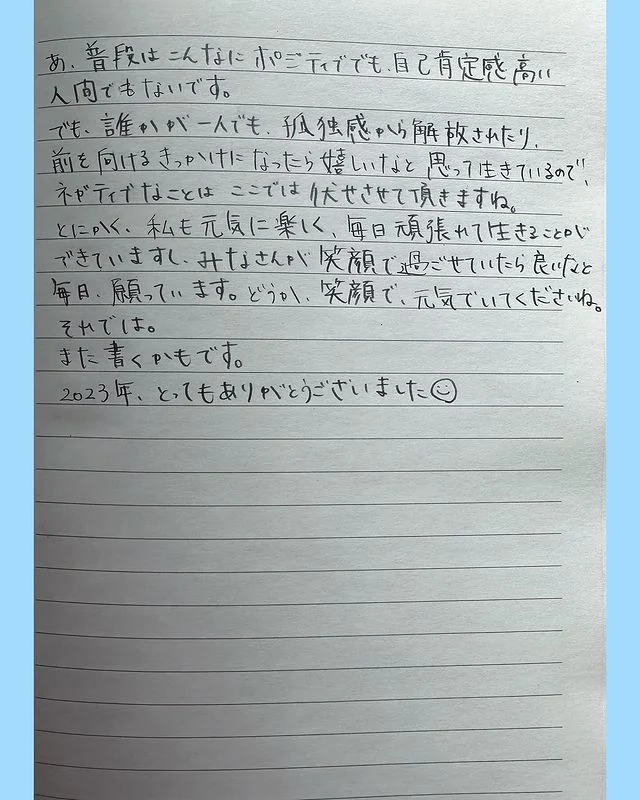 あ、普段はこんなにポジティブでも、自己肯定感高い
人間でもないです。
でも、誰かが一人でも、孤独感から解放されたり、
前を向けるきっかけになったら嬉しいなと思って生きているので、
ネガティブなことはここでは伏せさせて頂きますね。
とにかく、私も元気に楽しく、毎日頑張れて生きることが
できていますし、みなさんが笑顔で過ごせていたら良いなと
毎日、願っています。どうか、笑顔で、元気でいてくださいね。
それでは。
また書くかもです。
2023年、とってもありがとうございました☺